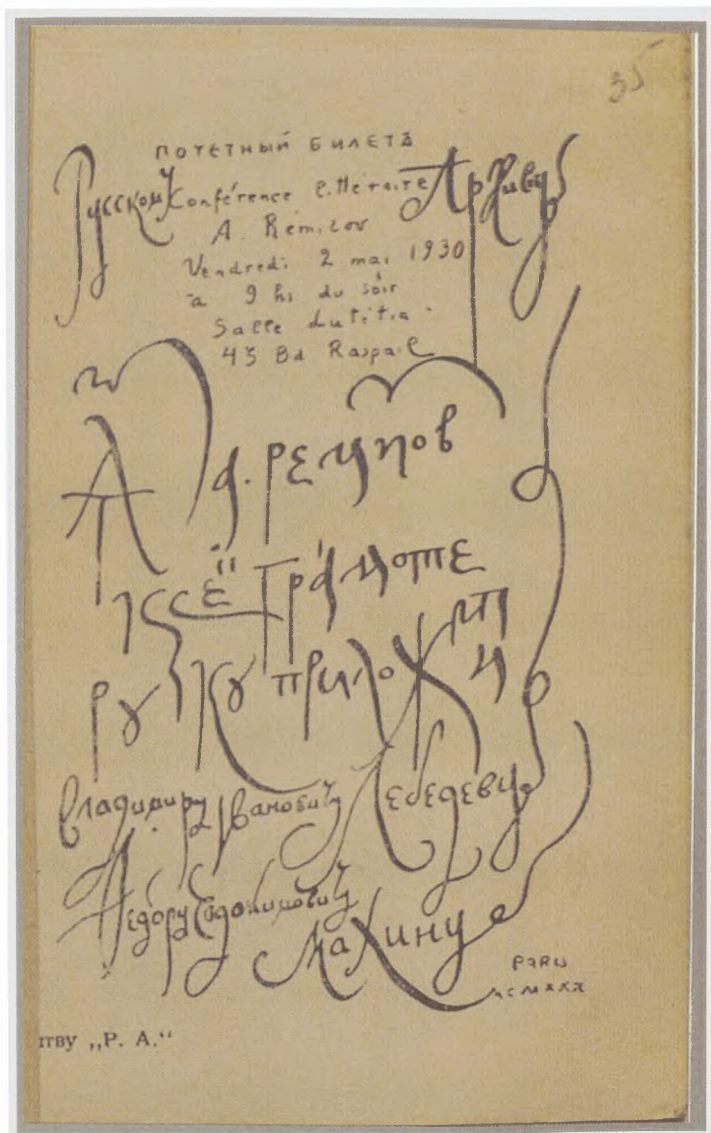 35
ПОЧЕТНЫЙ БИЛЕТЪ
Русскому Conférence littéraire Архиву
A. Remizov
Vendredi 2 mai 1930
à 9 hs du soir
Salle Lutétia
43 Bd Raspail
А. Ремизов
к сей грамоте
руку приложил
Владимиру Ивановичу Лебедеву
Федору Евдокимовичу
Махину
Paris
MCMXXX
тву „Р. А.“